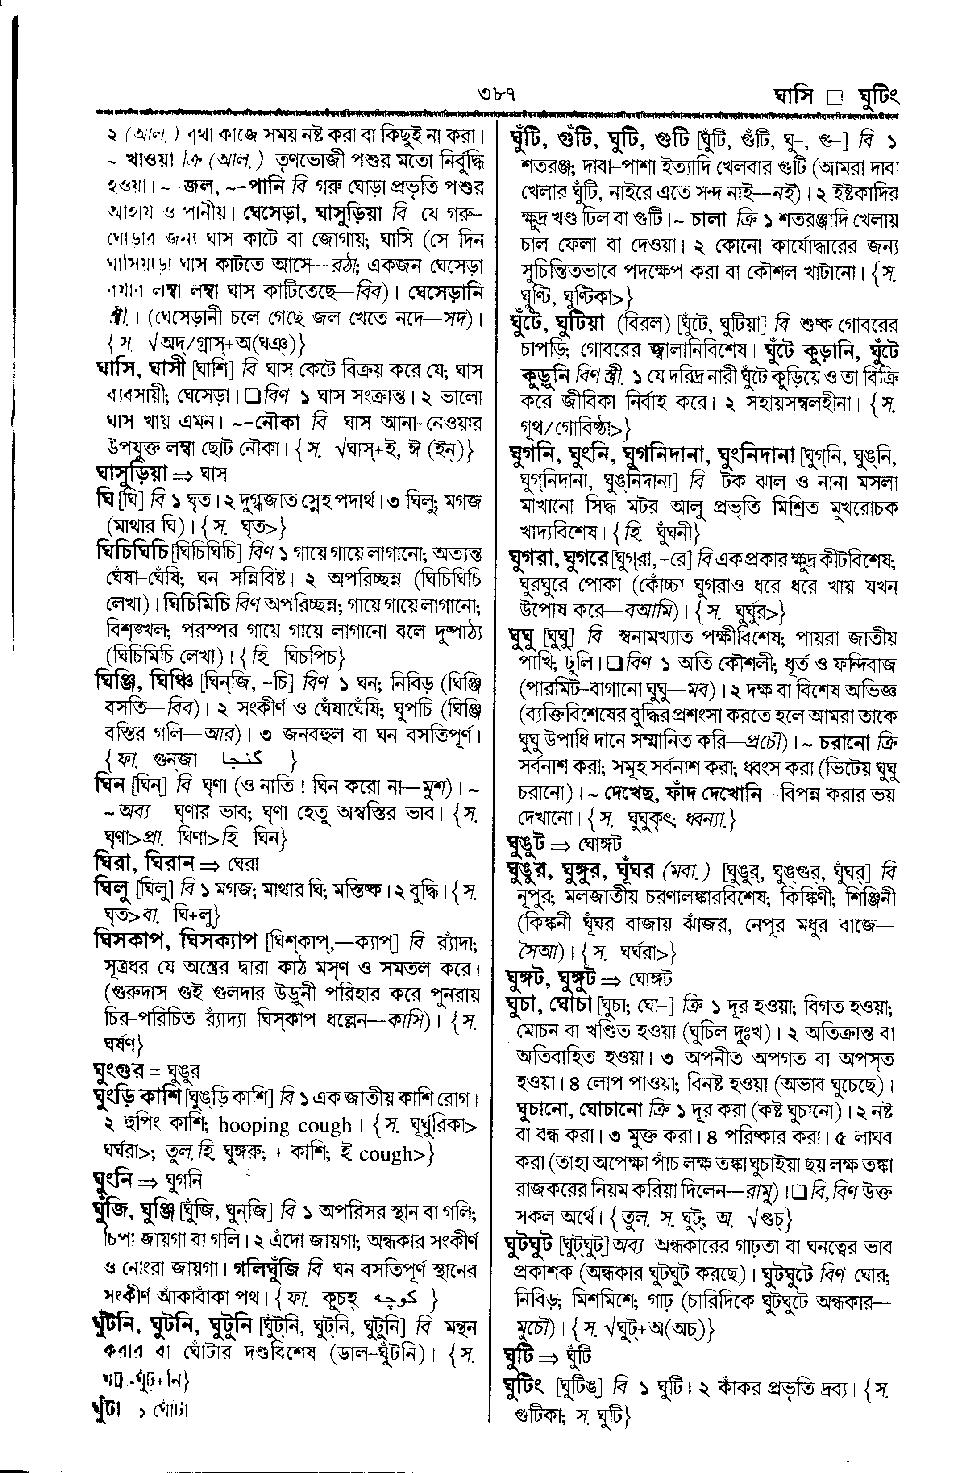 ৩৮৭
ঘাসি □ ঘুটিং
২ (আল.) বৃথা কাজে সময় নষ্ট করা বা কিছুই না করা।
~ খাওয়া ক্রি (আল.) তৃণভোজী পশুর মতো নির্বুদ্ধি
হওয়া। ~ জল, ~-পানি বি গরু ঘোড়া প্রভৃতি পশুর
আহার্য ও পানীয়। ঘেসেড়া, ঘাসুড়িয়া বি যে গরু-
ঘোড়ার জন্য ঘাস কাটে বা জোগায়; ঘাসি (সে দিন
ঘাসিয়াড়া ঘাস কাটতে আসে—রঠা; একজন ঘেসেড়া
এযান লম্বা লম্বা ঘাস কাটিতেছে—বিব)। ঘেসেড়ানি
স্ত্রী.। (ঘেসেড়ানী চলে গেছে জল খেতে নদে—সদ)।
{স. √অদ/গ্রাস্+অ(ঘঞ)}
ঘাসি, ঘাসী [ঘাশি] বি ঘাস কেটে বিক্রয় করে যে; ঘাস
ব্যবসায়ী; ঘেসেড়া। ❑বিণ ১ ঘাস সংক্রান্ত। ২ ভালো
ঘাস খায় এমন। ~-নৌকা বি ঘাস আনা-নেওয়ার
উপযুক্ত লম্বা ছোট নৌকা। {স. √ঘাস্+ই, ঈ (ইন্)}
ঘাসুড়িয়া ⇒ ঘাস
ঘি [ঘি] বি ১ ঘৃত। ২ দুগ্ধজাত স্নেহ পদার্থ। ৩ ঘিলু; মগজ
(মাথার ঘি)। {স. ঘৃত>}
ঘিচিঘিচি [ঘিচিঘিচি] বিণ ১ গায়ে গায়ে লাগানো; অত্যন্ত
ঘেঁষা-ঘেঁষি; ঘন সন্নিবিষ্ট। ২ অপরিচ্ছন্ন (ঘিচিঘিচি
লেখা)। ঘিচিমিচি বিণ অপরিচ্ছন্ন; গায়ে গায়ে লাগানো;
বিশৃঙ্খল; পরস্পর গায়ে গায়ে লাগানো বলে দুষ্পাঠ্য
(ঘিচিমিচি লেখা)। {হি. ঘিচপিচ}
ঘিঞ্জি, ঘিঞ্চি [ঘিন্‌জি, -চি] বিণ ১ ঘন; নিবিড় (ঘিঞ্জি
বসতি—বিব)। ২ সংকীর্ণ ও ঘেঁষাঘেঁষি; ঘুপচি (ঘিঞ্জি
বস্তির গলি—আর)। ৩ জনবহুল বা ঘন বসতিপূর্ণ।
{ফা. গুনজা گنجا}
ঘিন [ঘিন্] বি ঘৃণা (ও নাতি! ঘিন করো না—মুশ)। ~
~ অব্য ঘৃণার ভাব; ঘৃণা হেতু অস্বস্তির ভাব। {স.
ঘৃণা>প্রা. ঘিণা>হি ঘিন}
ঘিরা, ঘিরান ⇒ ঘেরা
ঘিলু [ঘিলু] বি ১ মগজ; মাথার ঘি; মস্তিষ্ক। ২ বুদ্ধি। {স.
ঘৃত>বা. ঘি+লু}
ঘিসকাপ, ঘিসক্যাপ [ঘিশ্‌কাপ্,—ক্যাপ্] বি র‍্যাঁদা;
সূত্রধর যে অস্ত্রের দ্বারা কাঠ মসৃণ ও সমতল করে।
(গুরুদাস গুই গুলদার উড়ুনী পরিহার করে পুনরায়
চির-পরিচিত র‍্যাঁদ্যা ঘিস্‌কাপ ধল্লেন—কাসি)। {স.
ঘর্ষণ}
ঘুংগুর = ঘুঙুর
ঘুংড়ি কাশি [ঘুঙ্‌ড়ি কাশি] বি ১ এক জাতীয় কাশি রোগ।
২ হুপিং কাশি; hooping cough। {স. ঘুর্ঘুরিকা>
ঘর্ঘরা>; তুল. হি. ঘুঙ্গরু; + কাশি; ই cough>}
ঘুংনি ⇒ ঘুগনি
ঘুঁজি, ঘুঞ্জি [ঘুঁজি, ঘুন্‌জি] বি ১ অপরিসর স্থান বা গলি;
চিপা জায়গা বা গলি। ২ এঁদো জায়গা; অন্ধকার সংকীর্ণ
ও নোংরা জায়গা। গলিঘুঁজি বি ঘন বসতিপূর্ণ স্থানের
সংকীর্ণ আঁকাবাঁকা পথ। {ফা. কূচহ্ کوچہ}
ঘুঁটনি, ঘুটনি, ঘুটুনি [ঘুঁট্‌নি, ঘুট্‌নি, ঘুটুনি] বি মন্থন
করার বা ঘোঁটার দণ্ডবিশেষ (ডাল-ঘুঁটনি)। {স.
ঘট্ট-ঘুঁট+নি}
ঘুঁটা ⇒ ঘোঁটা
ঘুঁটি, গুঁটি, ঘুটি, গুটি [ঘুঁটি, গুঁটি, ঘু-, গু-] বি ১
শতরঞ্জ; দাবা-পাশা ইত্যাদি খেলবার গুটি (আমরা দাবা
খেলার ঘুঁটি, নাইরে এতে সন্দ নাই—নই)। ২ ইষ্টকাদির
ক্ষুদ্র খণ্ড ঢিল বা গুটি। ~ চালা ক্রি ১ শতরঞ্জাদি খেলায়
চাল ফেলা বা দেওয়া। ২ কোনো কার্যোদ্ধারের জন্য
সুচিন্তিতভাবে পদক্ষেপ করা বা কৌশল খাটানো। {স.
ঘুণ্টি, ঘুণ্টিকা>}
ঘুঁটে, ঘুটিয়া (বিরল) [ঘুঁটে, ঘুটিয়া] বি শুষ্ক গোবরের
চাপড়ি; গোবরের জ্বালানিবিশেষ। ঘুঁটে কুড়ানি, ঘুঁটে
কুড়ুনি বিণ স্ত্রী. ১ যে দরিদ্র নারী ঘুঁটে কুড়িয়ে ও তা বিক্রি
করে জীবিকা নির্বাহ করে। ২ সহায়সম্বলহীনা। {স.
গৃথ/গোবিষ্ঠা>}
ঘুগনি, ঘুংনি, ঘুগনিদানা, ঘুংনিদানা [ঘুগ্‌নি, ঘুঙ্‌নি,
ঘুগ্‌নিদানা, ঘুঙ্‌নিদানা] বি টক ঝাল ও নানা মসলা
মাখানো সিদ্ধ মটর আলু প্রভৃতি মিশ্রিত মুখরোচক
খাদ্যবিশেষ। {হি. ঘুঁঘনী}
ঘুগরা, ঘুগরে [ঘুগ্‌রা, -রে] বি এক প্রকার ক্ষুদ্র কীটবিশেষ;
ঘুরঘুরে পোকা (কোঁচ্চা ঘুগরাও ধরে ধরে খায় যখন
উপোষ করে—বআমি)। {স. ঘুর্ঘুর>}
ঘুঘু [ঘুঘু] বি স্বনামখ্যাত পক্ষীবিশেষ; পায়রা জাতীয়
পাখি; ঢুলি। ❑বিণ ১ অতি কৌশলী; ধূর্ত ও ফন্দিবাজ
(পারমিট-বাগানো ঘুঘু—মব)। ২ দক্ষ বা বিশেষ অভিজ্ঞ
(ব্যক্তিবিশেষের বুদ্ধির প্রশংসা করতে হলে আমরা তাকে
ঘুঘু উপাধি দানে সম্মানিত করি—প্রচৌ)। ~ চরানো ক্রি
সর্বনাশ করা; সমূহ সর্বনাশ করা; ধ্বংস করা (ভিটেয় ঘুঘু
চরানো)। ~ দেখেছ, ফাঁদ দেখোনি বিপন্ন করার ভয়
দেখানো। {স. ঘুঘুকৃৎ; ধ্বন্যা.}
ঘুঙুট ⇒ ঘোঙ্গট
ঘুঙুর, ঘুঙ্গুর, ঘুঁঘর (মবা.) [ঘুঙুর্, ঘুঙ্গুর্, ঘুঁঘর্] বি
নূপুর; মলজাতীয় চরণালঙ্কারবিশেষ; কিঙ্কিণী; শিঞ্জিনী
(কিঙ্কনী ঘুঁঘর বাজায় ঝাঁজর, নেপুর মধুর বাজে—
সৈআ)। {স. ঘর্ঘরা>}
ঘুঙ্গট, ঘুঙ্গুট ⇒ ঘোঙ্গট
ঘুচা, ঘোচা [ঘুচা; ঘো-] ক্রি ১ দূর হওয়া; বিগত হওয়া;
মোচন বা খণ্ডিত হওয়া (ঘুচিল দুঃখ)। ২ অতিক্রান্ত বা
অতিবাহিত হওয়া। ৩ অপনীত অপগত বা অপসৃত
হওয়া। ৪ লোপ পাওয়া; বিনষ্ট হওয়া (অভাব ঘুচেছে)।
ঘুচানো, ঘোচানো ক্রি ১ দূর করা (কষ্ট ঘুচানো)। ২ নষ্ট
বা বন্ধ করা। ৩ মুক্ত করা। ৪ পরিষ্কার করা। ৫ লাঘব
করা (তাহা অপেক্ষা পাঁচ লক্ষ তঙ্কা ঘুচাইয়া ছয় লক্ষ তঙ্কা
রাজকরের নিয়ম করিয়া দিলেন—রামু)। ❑বি, বিণ উক্ত
সকল অর্থে। {তুল. স. ঘুট্; অ. √গুচ্}
ঘুটঘুট [ঘুট্‌ঘুট্] অব্য অন্ধকারের গাঢ়তা বা ঘনত্বের ভাব
প্রকাশক (অন্ধকার ঘুটঘুট করছে)। ঘুটঘুটে বিণ ঘোর;
নিবিড়; মিশমিশে; গাঢ় (চারিদিকে ঘুটঘুটে অন্ধকার—
মুচৌ)। {স. √ঘুট্+অ(অচ্)}
ঘুটি ⇒ ঘুঁটি
ঘুটিং [ঘুটিঙ্] বি ১ ঘুটি। ২ কাঁকর প্রভৃতি দ্রব্য। {স.
গুটিকা; স. ঘুটি}